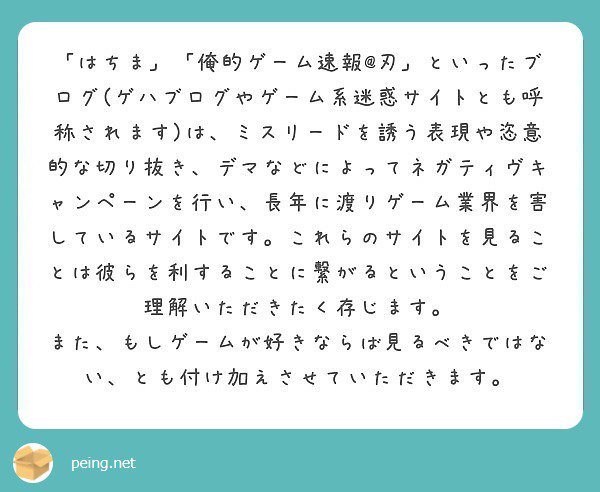 「はちま」「俺的ゲーム速報@刃」といったブ
ログ(ゲハブログやゲーム系迷惑サイトとも呼
称されます)は、ミスリードを誘う表現や恣意
的な切り抜き、デマなどによってネガティヴキ
ャンペーンを行い、長年に渡りゲーム業界を害
しているサイトです。これらのサイトを見るこ
とは彼らを利することに繋がるということをご
理解いただきたく存じます。
また、もしゲームが好きならば見るべきではな
い、とも付け加えさせていただきます。
peing.net